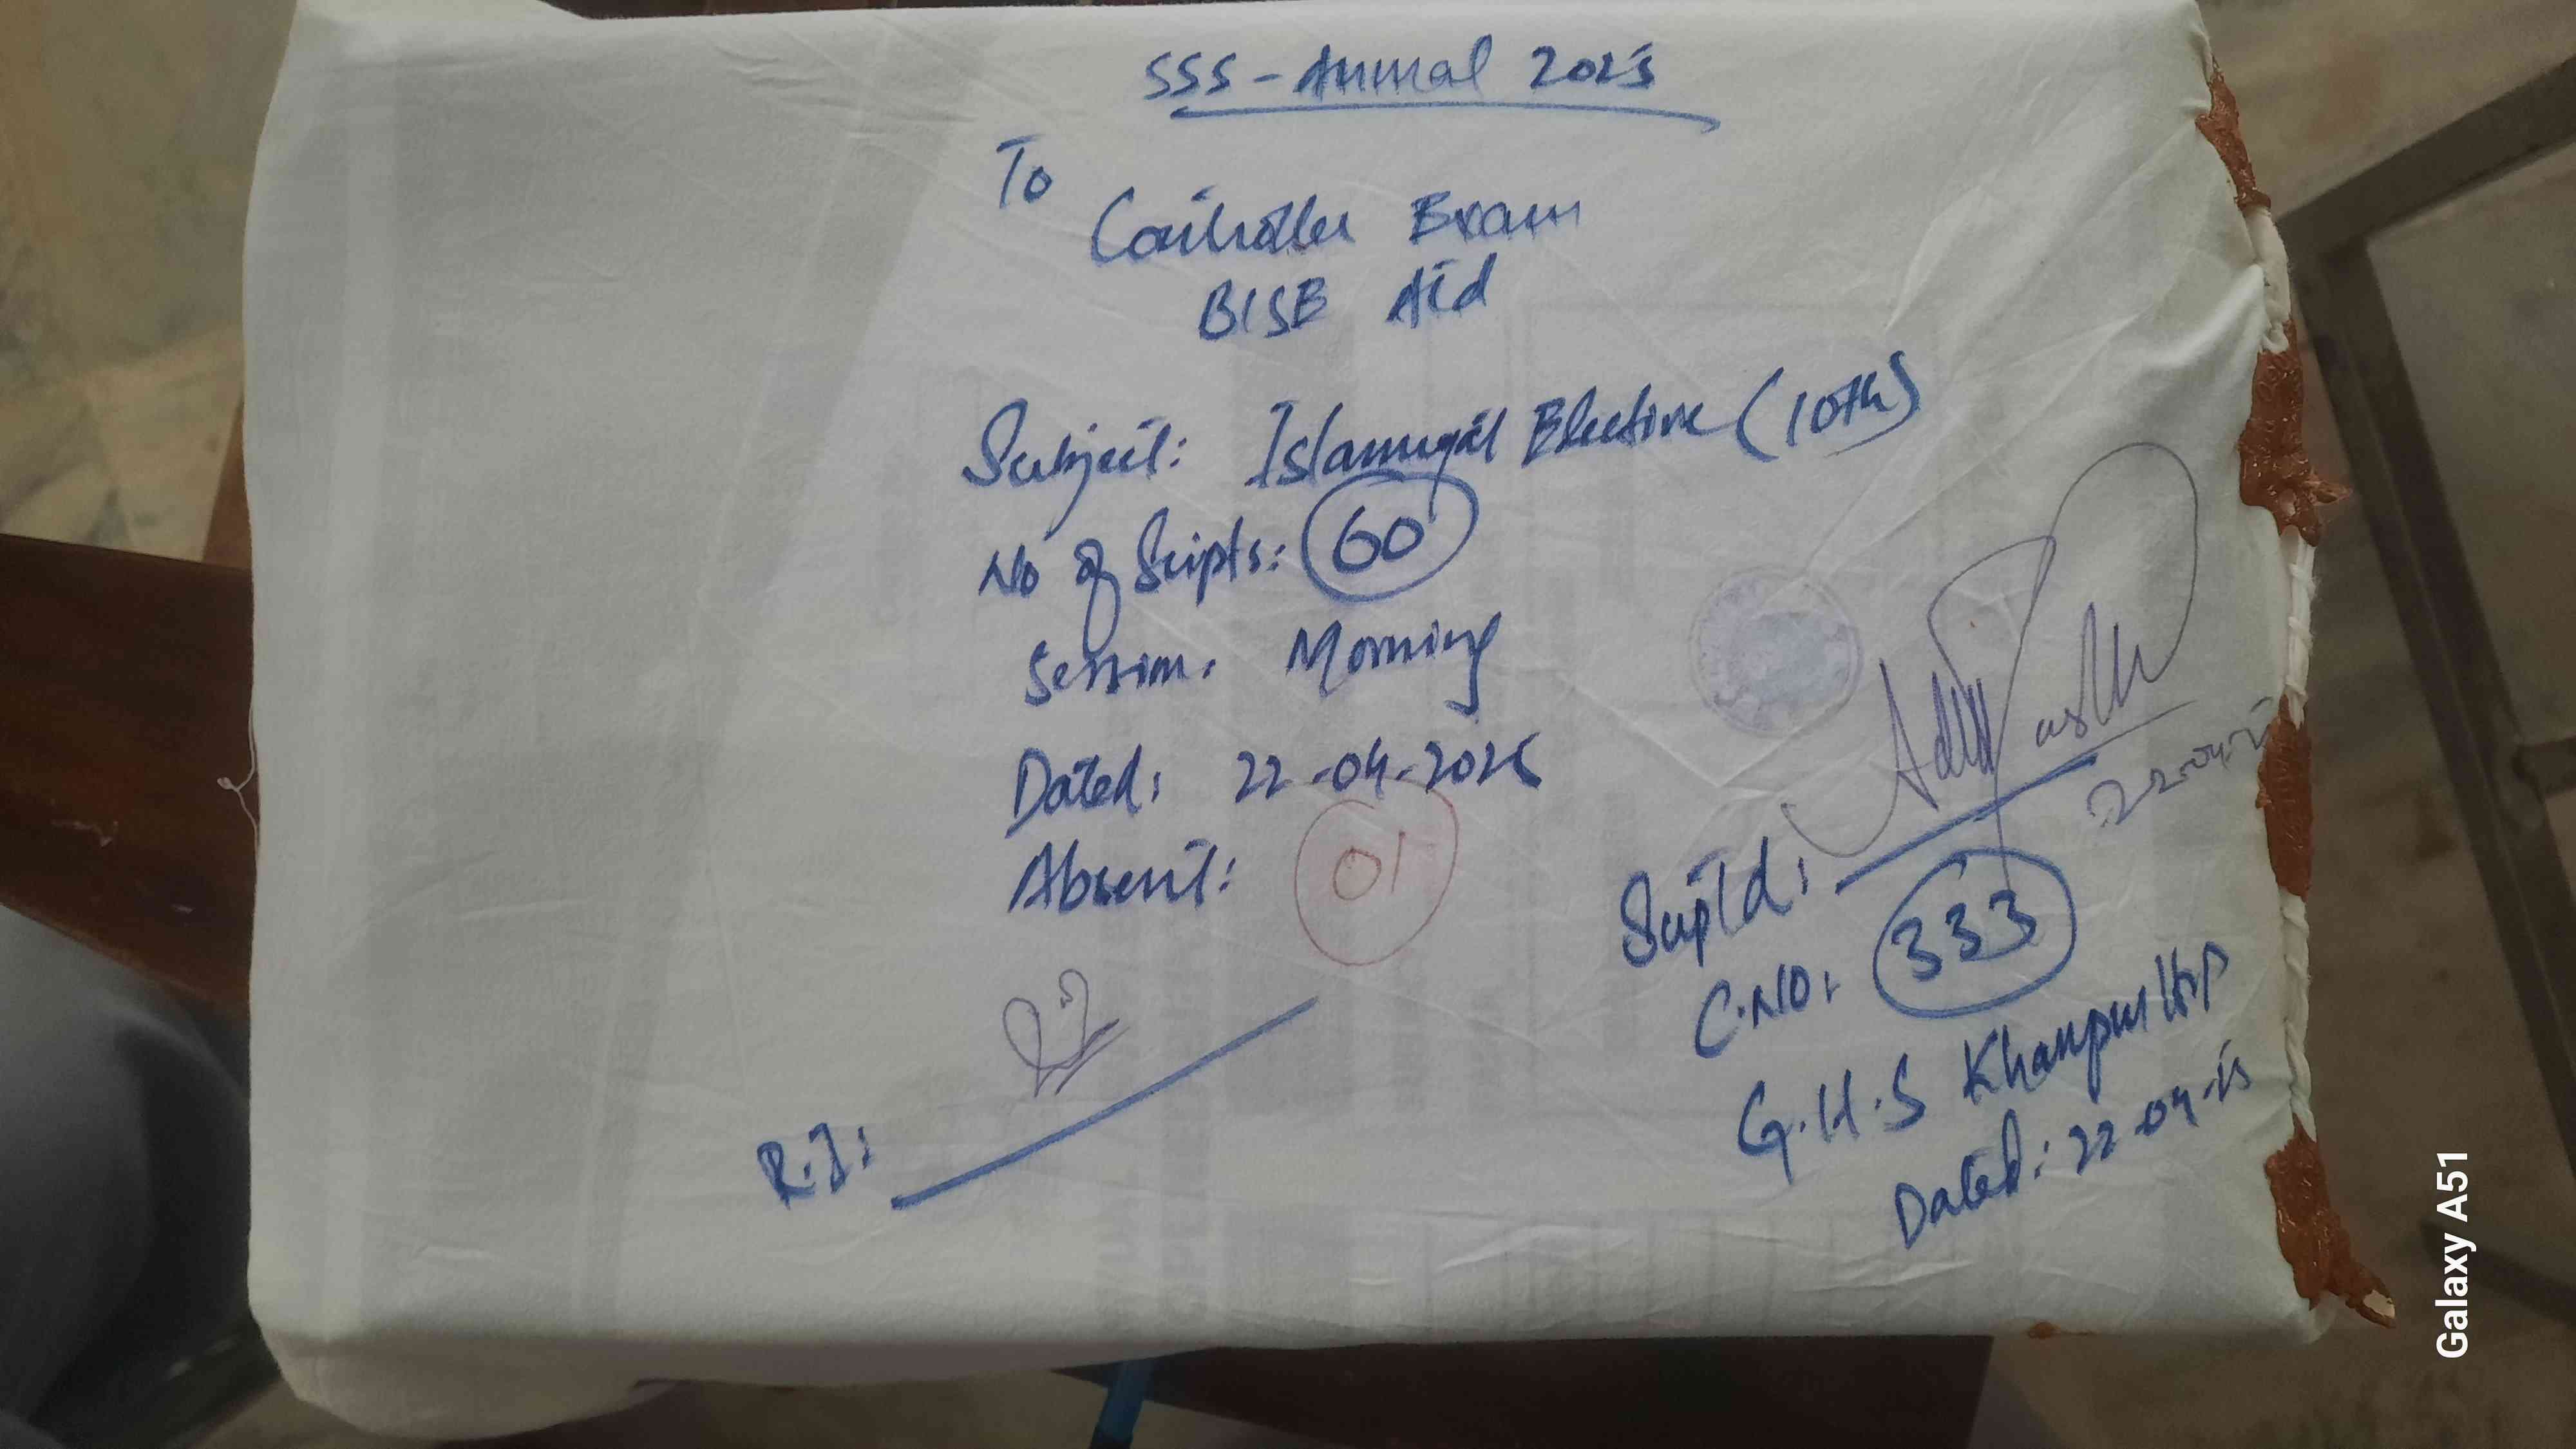 SSS - Annual 2025
To
Controller Exam
BISE Atd
Subject: Islamiyat Elective (10th)
No of Scripts: 60
Session: Morning
Dated: 22-04-2025
Absent: 01
R.I:
Suptd:
22-04-25
C.NO: 333
G.H.S Khanpur
Dated: 22-04-25
Galaxy A51